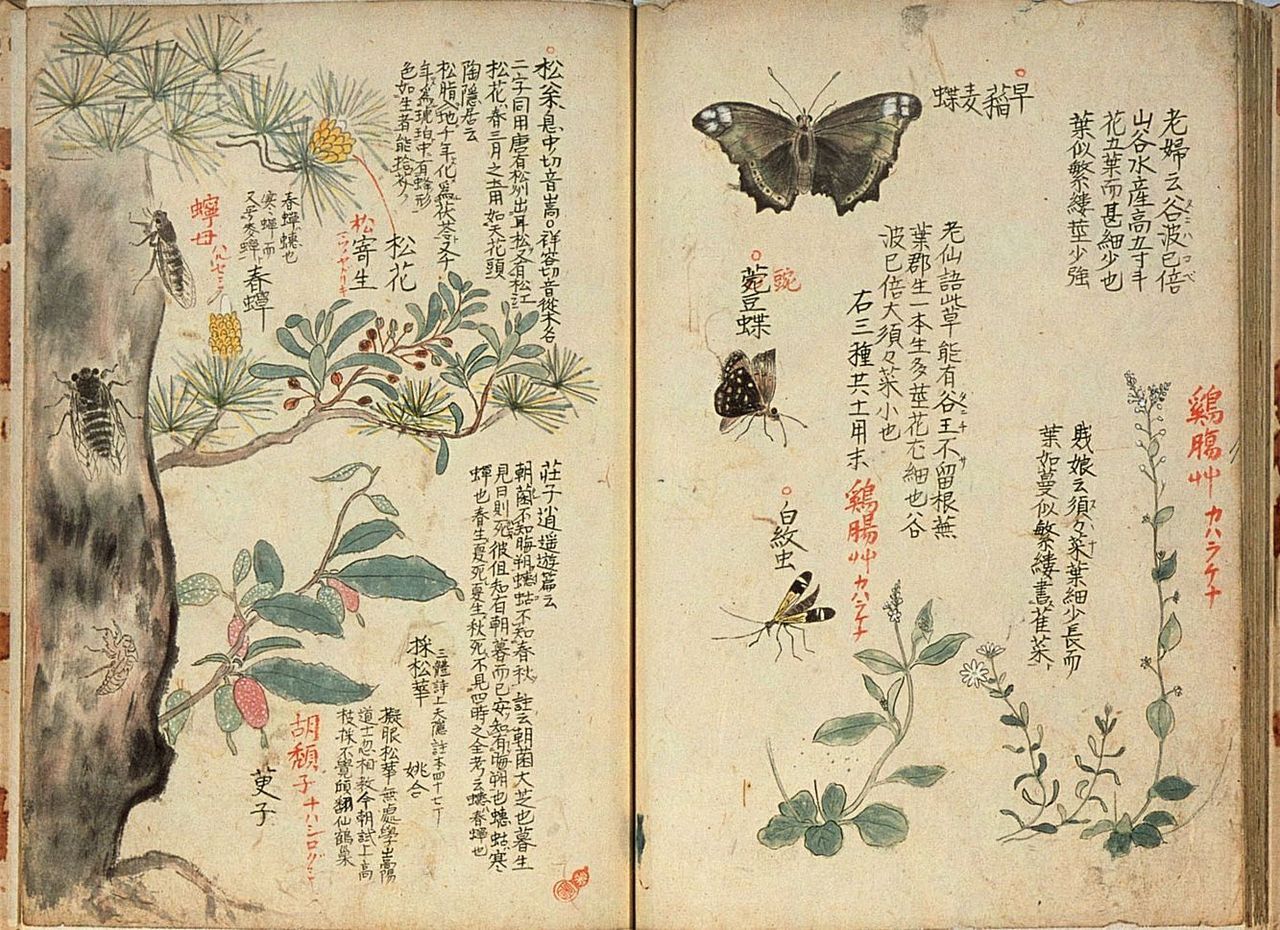 早稻麦蝶
老婦云谷波巳倍
山谷水産高五寸斗
花五葉而甚細少也
葉似繁縷莖少強
豌
菀豆蝶
白紋虫
老仙語此草能有谷王不留根蕪
葉郡生一本生多莖花亦細也谷
波巳倍大須々菜小也
右三種共土用末
鷄腸艸 カハラケナ
賎娘云須々菜葉細少長而
葉如蔓似繁縷書萑菜
鷄腸艸 カハラケナ
二字同用唐有松列出耳松又有松江
松花春三月之生用如天花頭
陶隱居云
松脂入地千年化為茯苓又千
年為琥珀中有蜂形
色如生者能拾芥
松花
松寄生
春蟬蟪也
寒蟬而
春蟬
蟀母 ハルセミ
莊子逍遥遊篇云
朝菌不知晦朔蟪蛄不知春秋註云朝菌大芝也暮生
見日則死彼但知有朝暮而已安知有晦朔也蟪蛄寒
蟬也春生夏死夏生秋死不見四時之全考云蟪春蟬也
三體詩上天隱註本四十七丁
採松華 姚合
擬服松華無處學嵩陽
道士忽相教今朝試上高
枝採不覺傾翻仙鶴巢
胡頽子 ナハシログミ
茰子